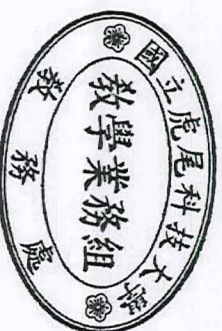 國立虎尾科技大學
教學業務組
教務處